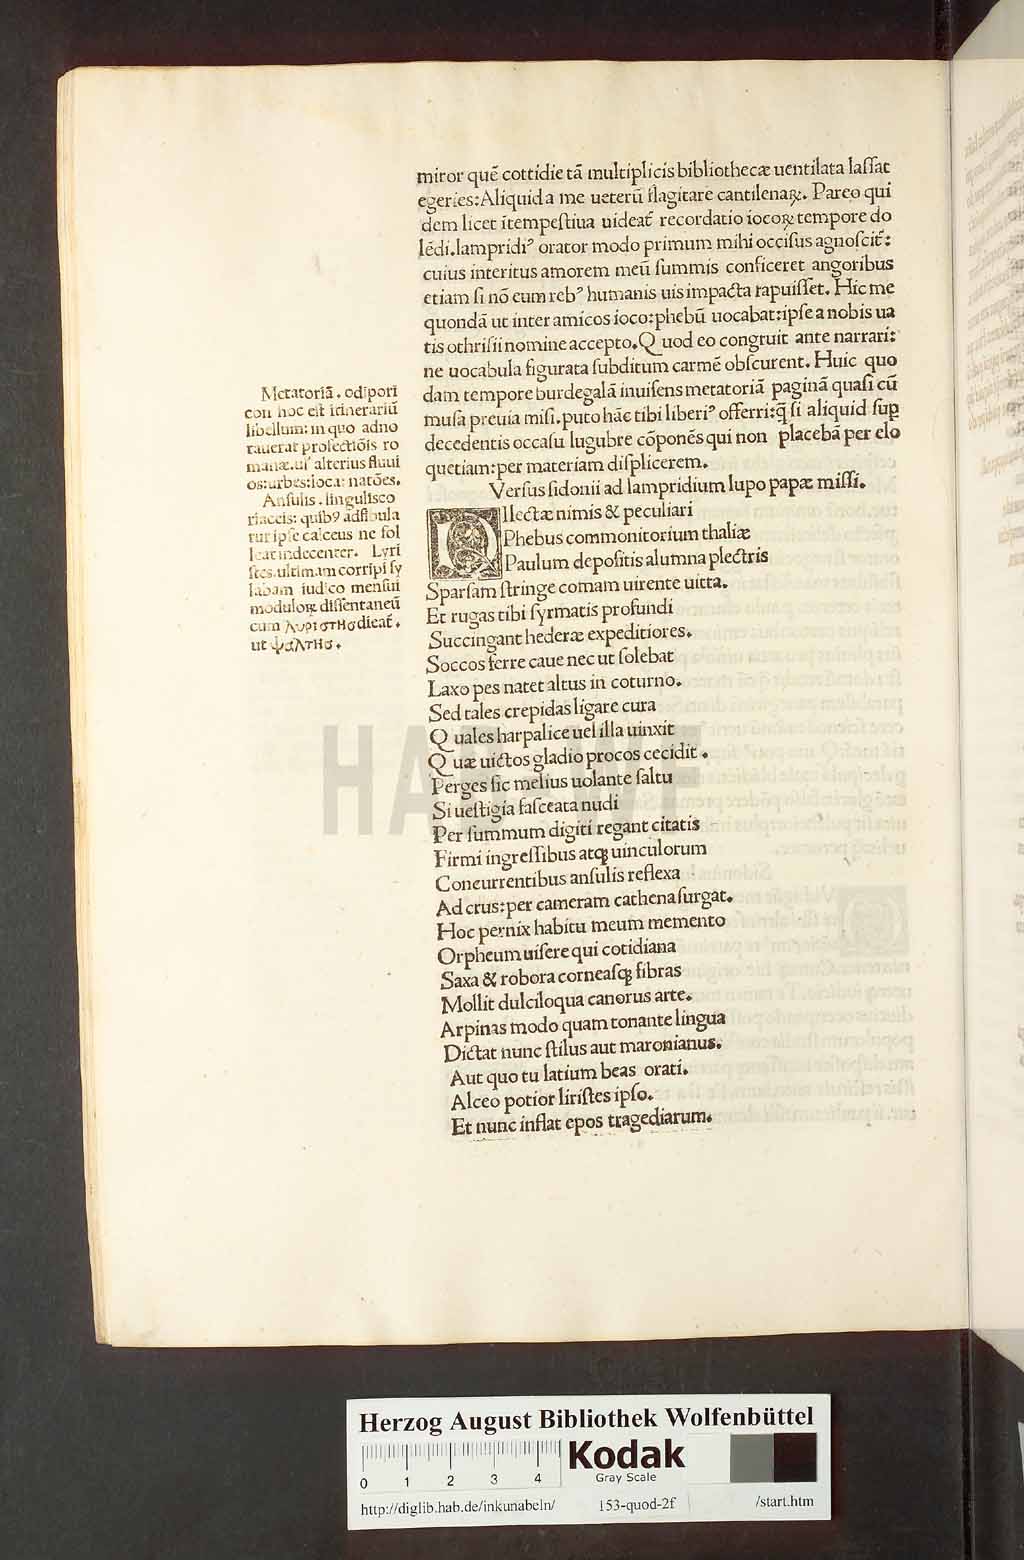 miror quē cottidie tā multiplicis bibliothecæ uentilata laſſat
egeries: Aliquid a me ueterū flagitare cantilenaꝝ. Pareo qui
dem licet ītempeſtiua uideat̃ recordatio iocoꝝ tempore do
lēdi. lampridiꝰ orator modo primum mihi occiſus agnoſcit̃:
cuius interitus amorem meū ſummis conficeret angoribus
etiam ſi nō eum rebꝰ humanis uis impacta rapuiſſet. Hic me
quondā ut inter amicos ioco: phebū uocabat: ipſe a nobis ua
tis othriſii nomine accepto. Quod eo congruit ante narrari:
ne uocabula figurata ſubditum carmē obſcurent. Huic quo
dam tempore burdegalā inuiſens metatoriā paginā quaſi cū
muſa preuia miſi. puto hāc tibi liberiꝰ offerri: q̄ ſi aliquid ſuꝑ
decedentis occaſu lugubre cōponēs qui non placebā per elo
quetiam: per materiam diſplicerem.
Verſus ſidonii ad lampridium lupo papæ miſſi.
QIlectæ nimis & peculiari
Phebus commonitorium thaliæ
Paulum depoſitis alumna plectris
Sparſam ſtringe comam uirente uitta.
Et rugas tibi ſyrmatis profundi
Succingant hederæ expeditiores.
Soccos ferre caue nec ut ſolebat
Laxo pes natet altus in coturno.
Sed tales crepidas ligare cura
Quales harpalice uel illa uinxit
Quæ uictos gladio procos cecidit.
Perges ſic melius uolante ſaltu
Si ueſtigia faſceata nudi
Per ſummum digiti regant citatis
Firmi ingreſſibus atqꝫ uinculorum
Concurrentibus anſulis reflexa
Ad crus: per cameram cathena ſurgat.
Hoc pernix habitu meum memento
Orpheum uiſere qui cotidiana
Saxa & robora corneaſqꝫ fibras
Mollit dulciloqua canorus arte.
Arpinas modo quam tonante lingua
Dictat nunc ſtilus aut maronianus.
Aut quo tu latium beas orati.
Alceo potior liriſtes ipſo.
Et nunc inflat epos tragediarum.
Metatoriā. odīpori
con hoc eſt itinerariū
libellum: in quo adno
tauerat profectiōis ro
manæ. uꝉ alterius fluui
os: urbes: loca: natōes.
Anſulis. lingulisco
rīaceis: quibꝰ adfibula
tur ipſe calceus ne ſol
leat indecenter. Lyri
ſtes. ultimam corripi ſy
labam iudico menſui
moduloꝝ diſſentaneū
cum λυριστησ dicat̃.
ut ψαλτησ.
HAB WF
Herzog August Bibliothek Wolfenbüttel
0 1 2 3 4
Kodak
Gray Scale
http://diglib.hab.de/inkunabeln/ 153-quod-2f /start.htm